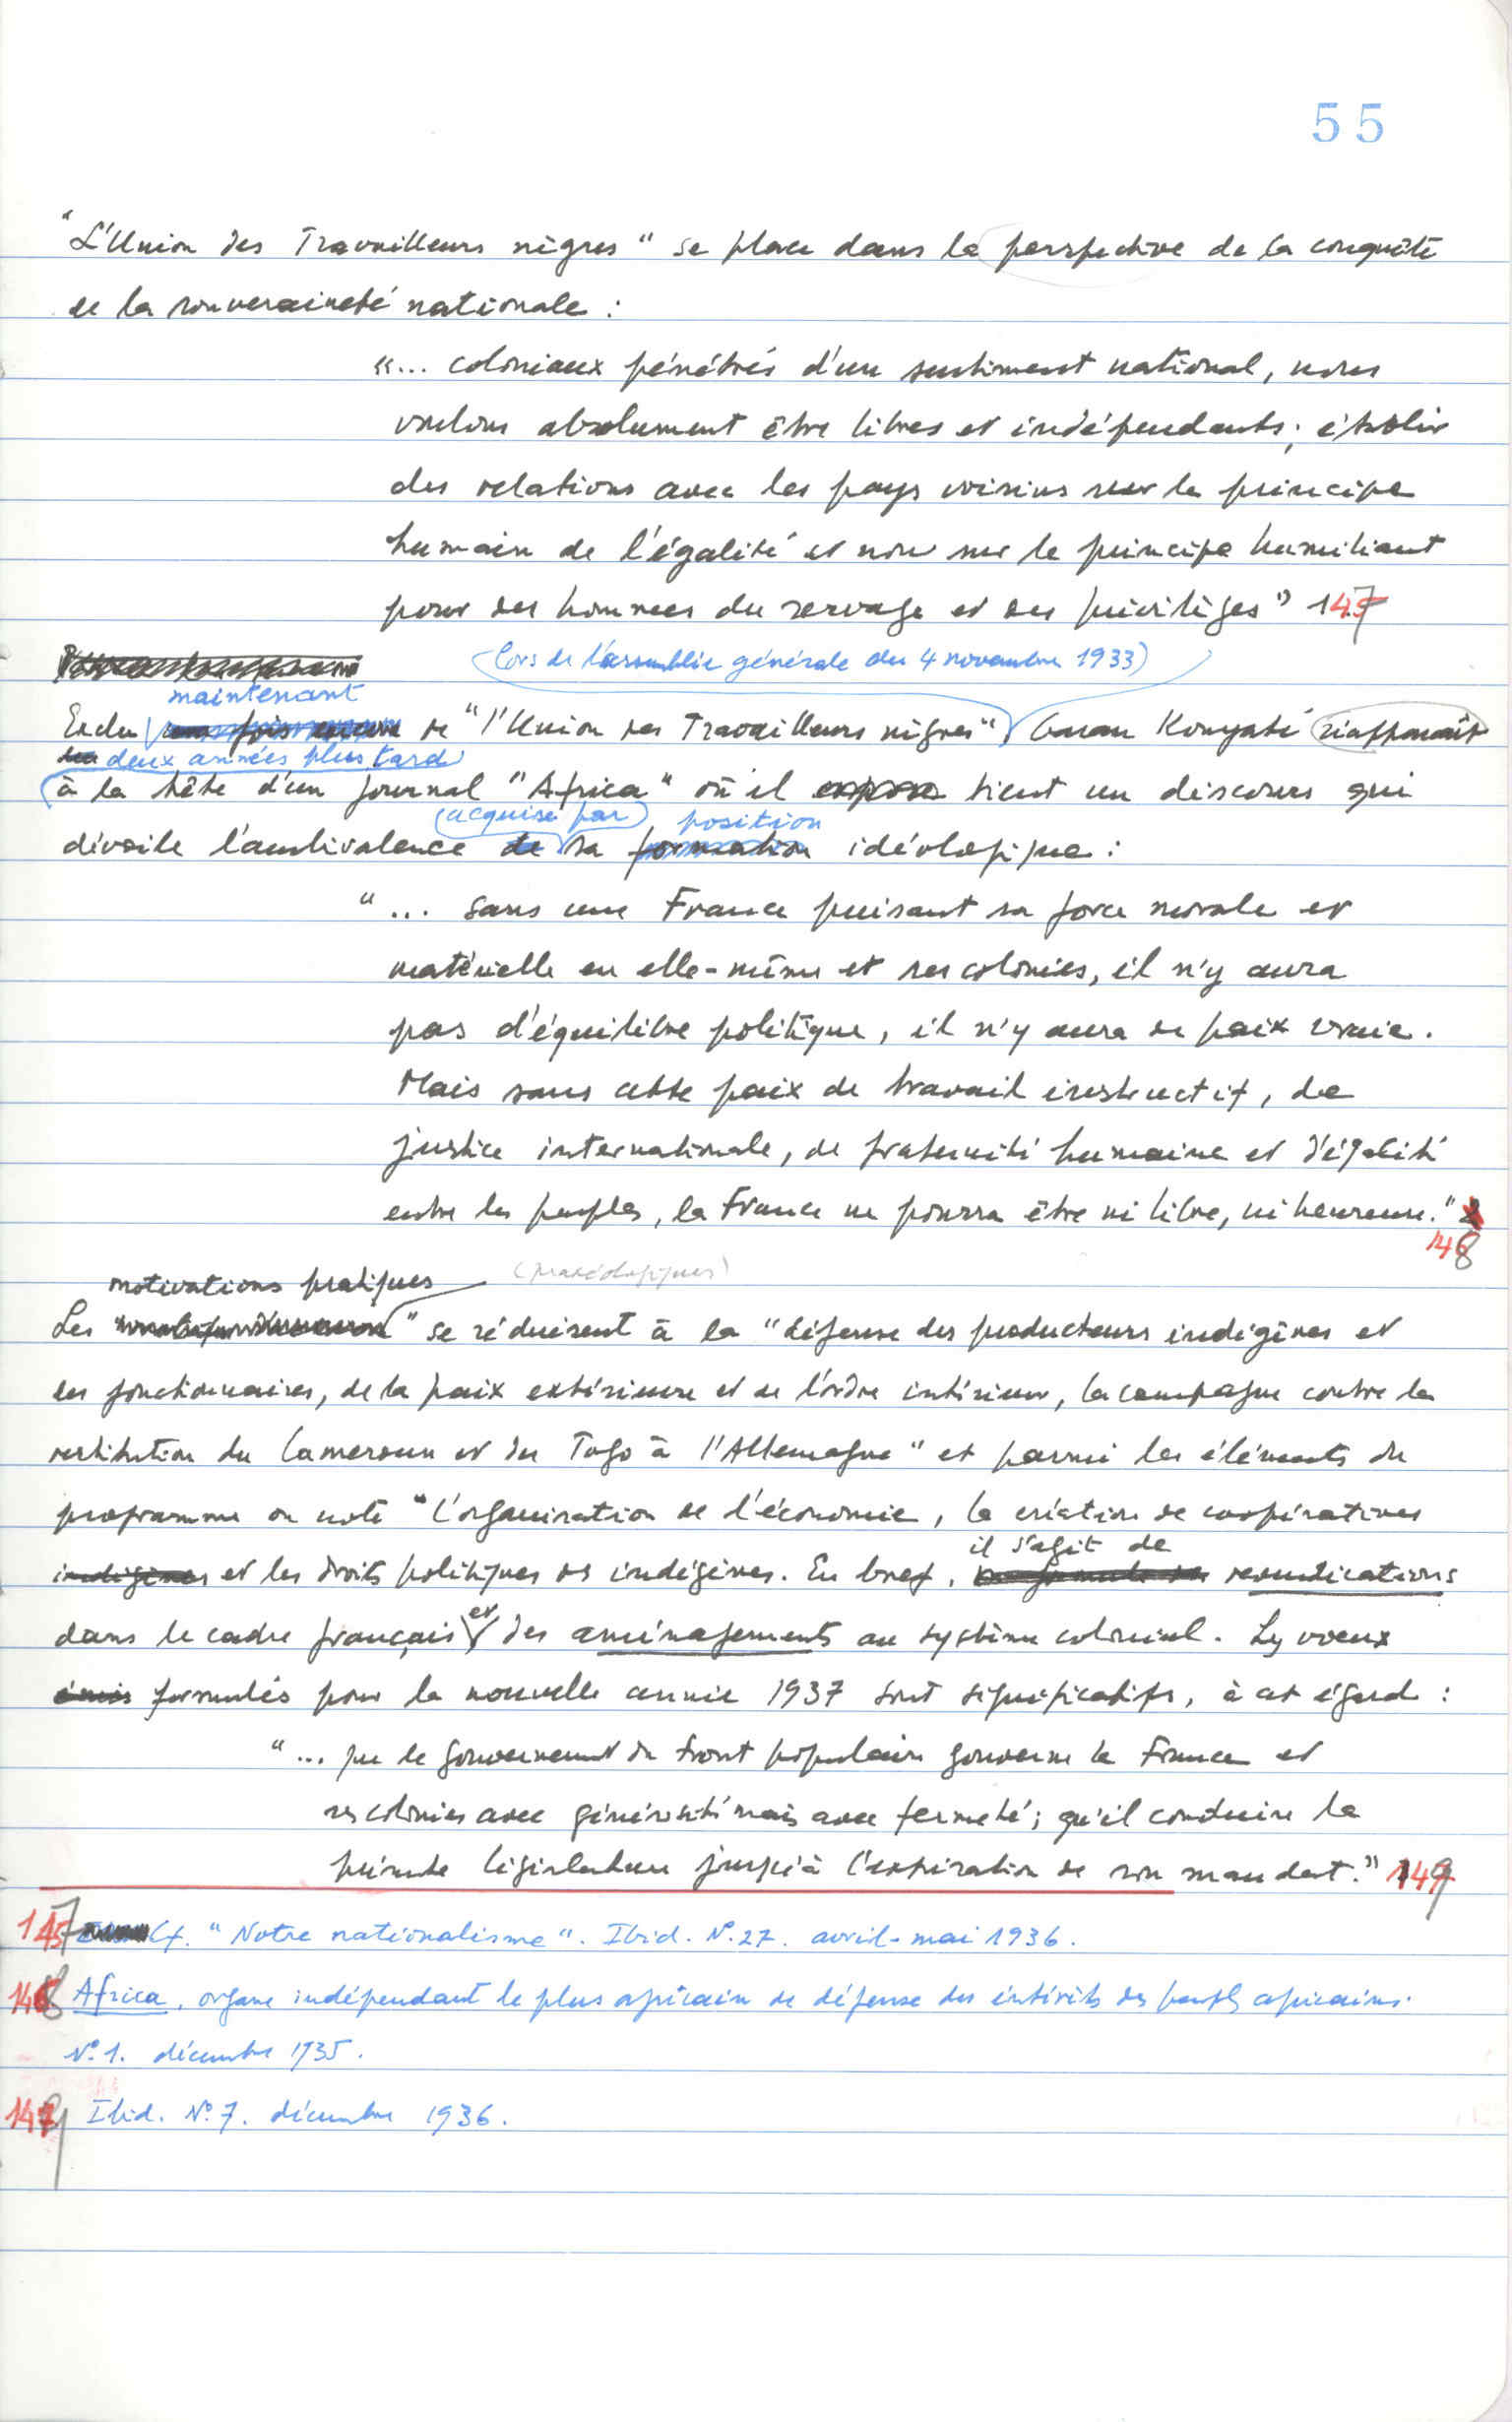 55
"L'Union des Travailleurs nègres" se place dans la perspective de la conquête
de la souveraineté nationale :
"... coloniaux pénétrés d'un sentiment national, nous
voulons absolument être libres et indépendants ; établir
des relations avec les pays voisins sur le principe
humain de l'égalité et non sur le principe humiliant
pour des hommes du servage et des privilèges" 147
(lors de l'assemblée générale du 4 novembre 1933)
maintenant
Exclu une fois encore de "l'Union des Travailleurs nègres" Kouyaté réapparaît
deux années plus tard
à la tête d'un journal "Africa" où il expose tient un discours qui
(acquise par) position
dévoile l'ambivalence de sa formation idéologique :
"... sans une France puisant sa force morale et
matérielle en elle-même et ses colonies, il n'y aura
pas d'équilibre politique, il n'y aura de paix vraie.
Mais sans cette paix de travail, de
justice internationale, de fraternité humaine et d'égalité
entre les peuples, la France ne pourra être ni libre, ni heureuse."
148
motivations pratiques (praxéologiques)
Les " se réduisent à la "défense des producteurs indigènes et
des fonctionnaires, de la paix extérieure et de l'ordre intérieur, la campagne contre la
restitution du Cameroun et du Togo à l'Allemagne" et parmi les éléments du
programme on note "l'organisation de l'économie, la création de coopératives
il s'agit de
indigènes et les droits politiques des indigènes. En bref, revendications
dans le cadre français et des aménagements au système colonial. Les voeux
émis formulés pour la nouvelle année 1937 sont significatifs, à cet égard :
"... que le gouvernement du Front populaire gouverne la France et
ses colonies avec générosité mais avec fermeté ; qu'il conduise la
présente législature jusqu'à l'expiration de son mandat." 149
147 Cf. "Notre nationalisme". Ibid. N°. 27. avril-mai 1936.
148 Africa, organe indépendant le plus africain de défense des intérêts des peuples africains.
N° 1. décembre 1935.
149 Ibid. N° 7. décembre 1936.